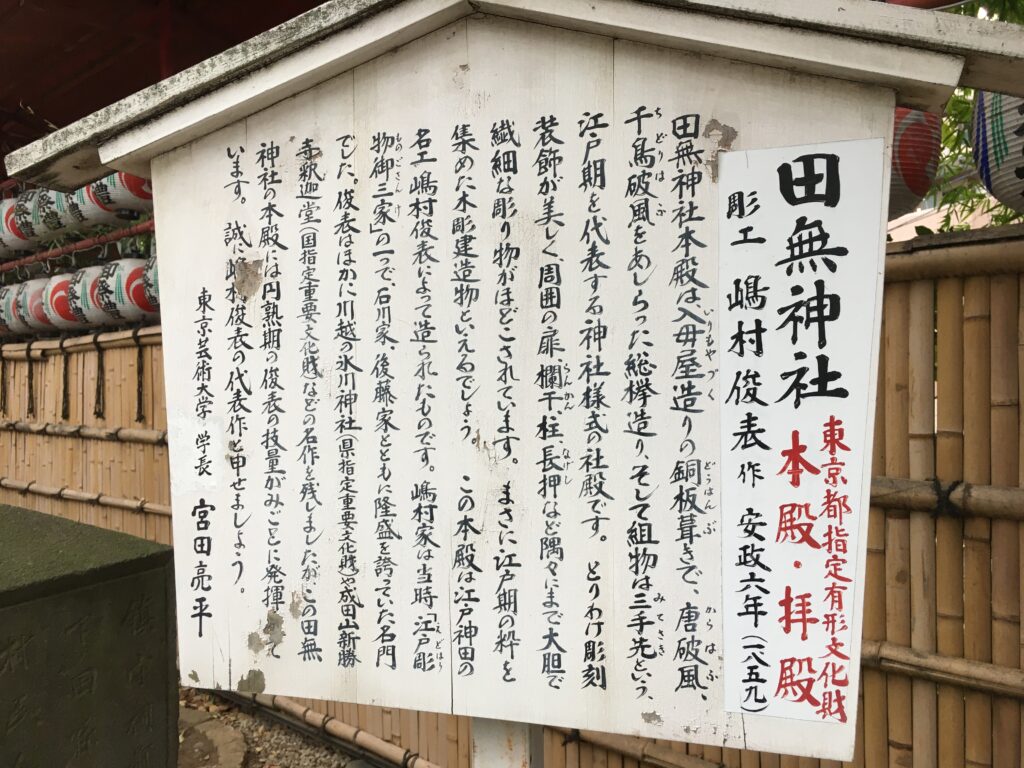 田無神社 本殿・拝殿
東京都指定有形文化財
彫工 嶋村俊表作 安政六年(一八五九)
田無神社本殿は、入母屋造りの銅板葺きで、唐破風、
いりもやづく
どうはんぶ
からはふ
千鳥破風をあしらった総欅造り、そして組物は三手先という、
ちどりはふ
みてさき
江戸期を代表する神社様式の社殿です。とりわけ彫刻
装飾が美しく、周囲の扉、欄干、柱、長押など隅々にまで大胆で
らんかん
なげし
繊細な彫り物がほどこされています。まさに江戸期の粋を
集めた木彫建造物といえるでしょう。この本殿は江戸神田の
名工嶋村俊表によって造られたものです。嶋村家は当時「江戸彫
えどほり
物御三家」の一つで、石川家、後藤家とともに隆盛を誇っていた名門
ものごさんけ
でした。俊表はほかに川越の氷川神社(県指定重要文化財)や成田山新勝
寺釈迦堂(国指定重要文化財)などの名作を残しましたが、この田無
神社の本殿には円熟期の俊表の技量がみごとに発揮されて
います。誠に嶋村俊表の代表作と申せましょう。
東京芸術大学 学長 宮田亮平